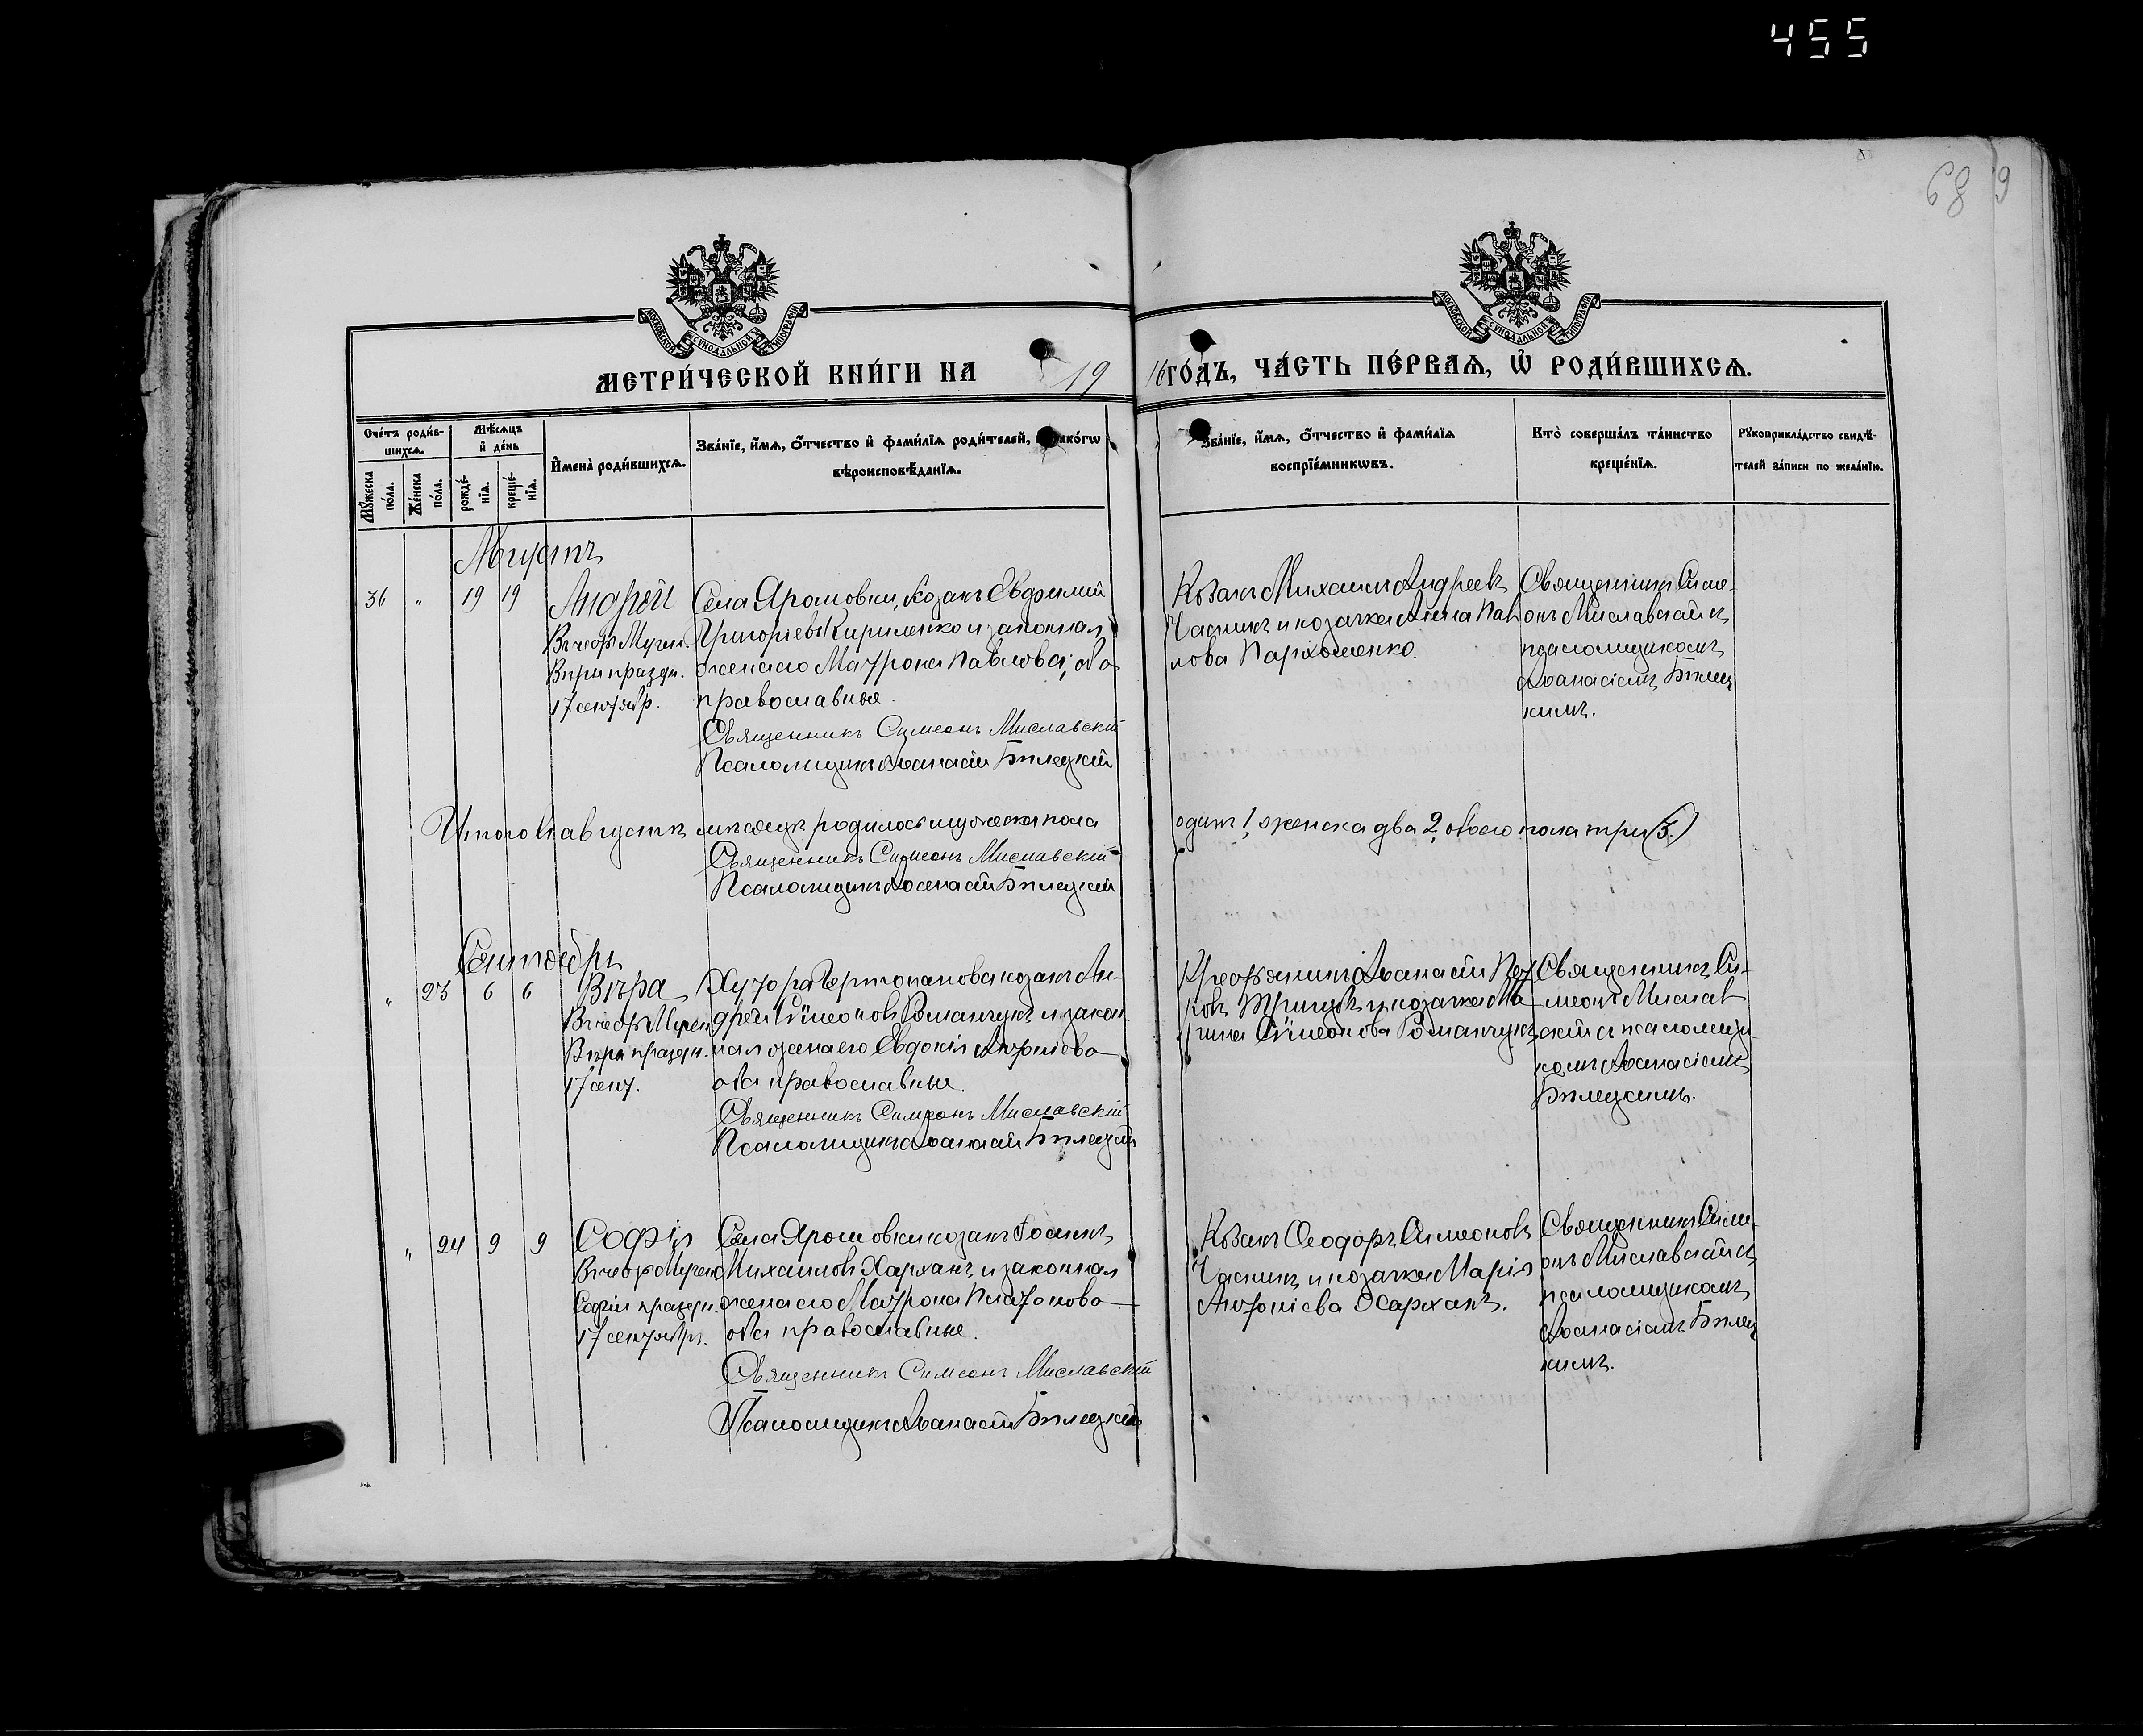 455
68 9
МОСКОВСКОЙ СУНОДАЛЬНОЙ ТИПОГРАФІИ
МОСКОВСКОЙ СУНОДАЛЬНОЙ ТИПОГРАФІИ
МЕТРИ́ЧЕСКОЙ КНИ́ГИ НА 19
16 ГО́ДЪ, ЧА́СТЬ ПЕ́РВАѦ, Ѡ РОДИ́ВШИХСѦ.
Сче́тъ роди́в-
шихсѧ.
Мѣ́сѧцъ
и҆ де́нь
Мꙋ́жеска
по́ла.
Же́нска
по́ла.
рожде́-
нїѧ.
креще́-
нїѧ.
И҆мена̀ роди́вшихсѧ.
Зва́нїе, и҆́мѧ, ѻ҆́тчество и҆ фами́лїѧ роди́телей,
вѣроисповѣ́данїѧ.
Зва́нїе, и҆́мѧ, ѻ҆́тчество и҆ фами́лїѧ
воспрїе́мникѡвъ.
Кто̀ соверша́лъ та́инство
креще́нїѧ.
Рꙋкоприкла́дство свидѣ́-
телей за́писи по жела́нїю.
Августъ
36 " 19 19 Андрей
Въ честь Мучен.
праздн.
17 сентябр.
Села Ярошовки, козакъ Евдокимій
Григорьевъ Кириленко и законная
жена его Матрона Павлова, оба
православные.
Священникъ Симеонъ Миславскій
Псаломщикъ Аѳанасій Бѣлецкій
Козакъ Михаилъ Андреевъ
Часникъ и козачка Анна Пав
лова Пархоменко.
Священникъ Симе-
онъ Миславскій съ
псаломщикомъ
Аѳанасіемъ Бѣлец
кимъ.
Итого въ августѣ мѣсяцѣ родилось мужеска пола
одинъ 1, женска два 2, обоего пола три (3.)
Священникъ Симеонъ Миславскій
Псаломщикъ Аѳанасій Бѣлецкій
Сентябрь
" 23 6 6 Вѣра
Въ честь Мучен
Вѣры праздн.
17 сент.
Хутора козакъ Ан-
дрей Сѵмеоновъ Романчукъ и закон-
ная жена его Евдокія Антоніева
оба православные.
Священникъ Симеонъ Миславскій
Псаломщикъ Аѳанасій Бѣлецкій
Крестьянинъ Аѳанасій Пет
ровъ и козачка Ма
рина Сѵмеонова Романчукъ
Священникъ Си-
меонъ Мислав
скій съ псаломщи
комъ Аѳанасіемъ
Бѣлецкимъ.
" 24 9 9 Софія
Въ честь Мучен
Софіи праздн.
17 сентября.
Села Ярошовки козакъ Іосифъ
Михаиловъ Харханъ и законная
жена его Матрона Платонова
оба православные.
Священникъ Симеонъ Миславскій
Псаломщикъ Аѳанасій Бѣлецкій
Козакъ Ѳеодоръ Симеоновъ
Часникъ и козачка Марія
Антоніева Харханъ.
Священникъ Симе-
онъ Миславскій съ
псаломщикомъ
Аѳанасіемъ Бѣлец
кимъ.